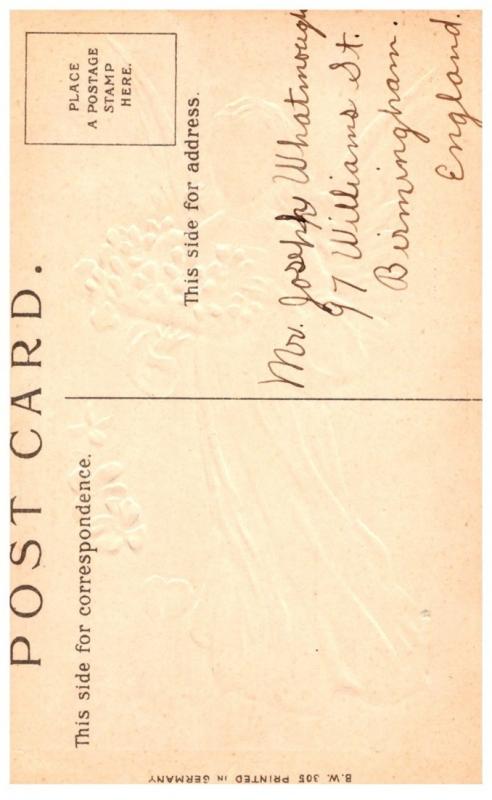 POST CARD.
PLACE
A POSTAGE
STAMP
HERE.
This side for correspondence.
This side for address.
Mr. Joseph Whatmough
97 Williams St.
Birmingham.
England.
B.W. 305 PRINTED IN GERMANY